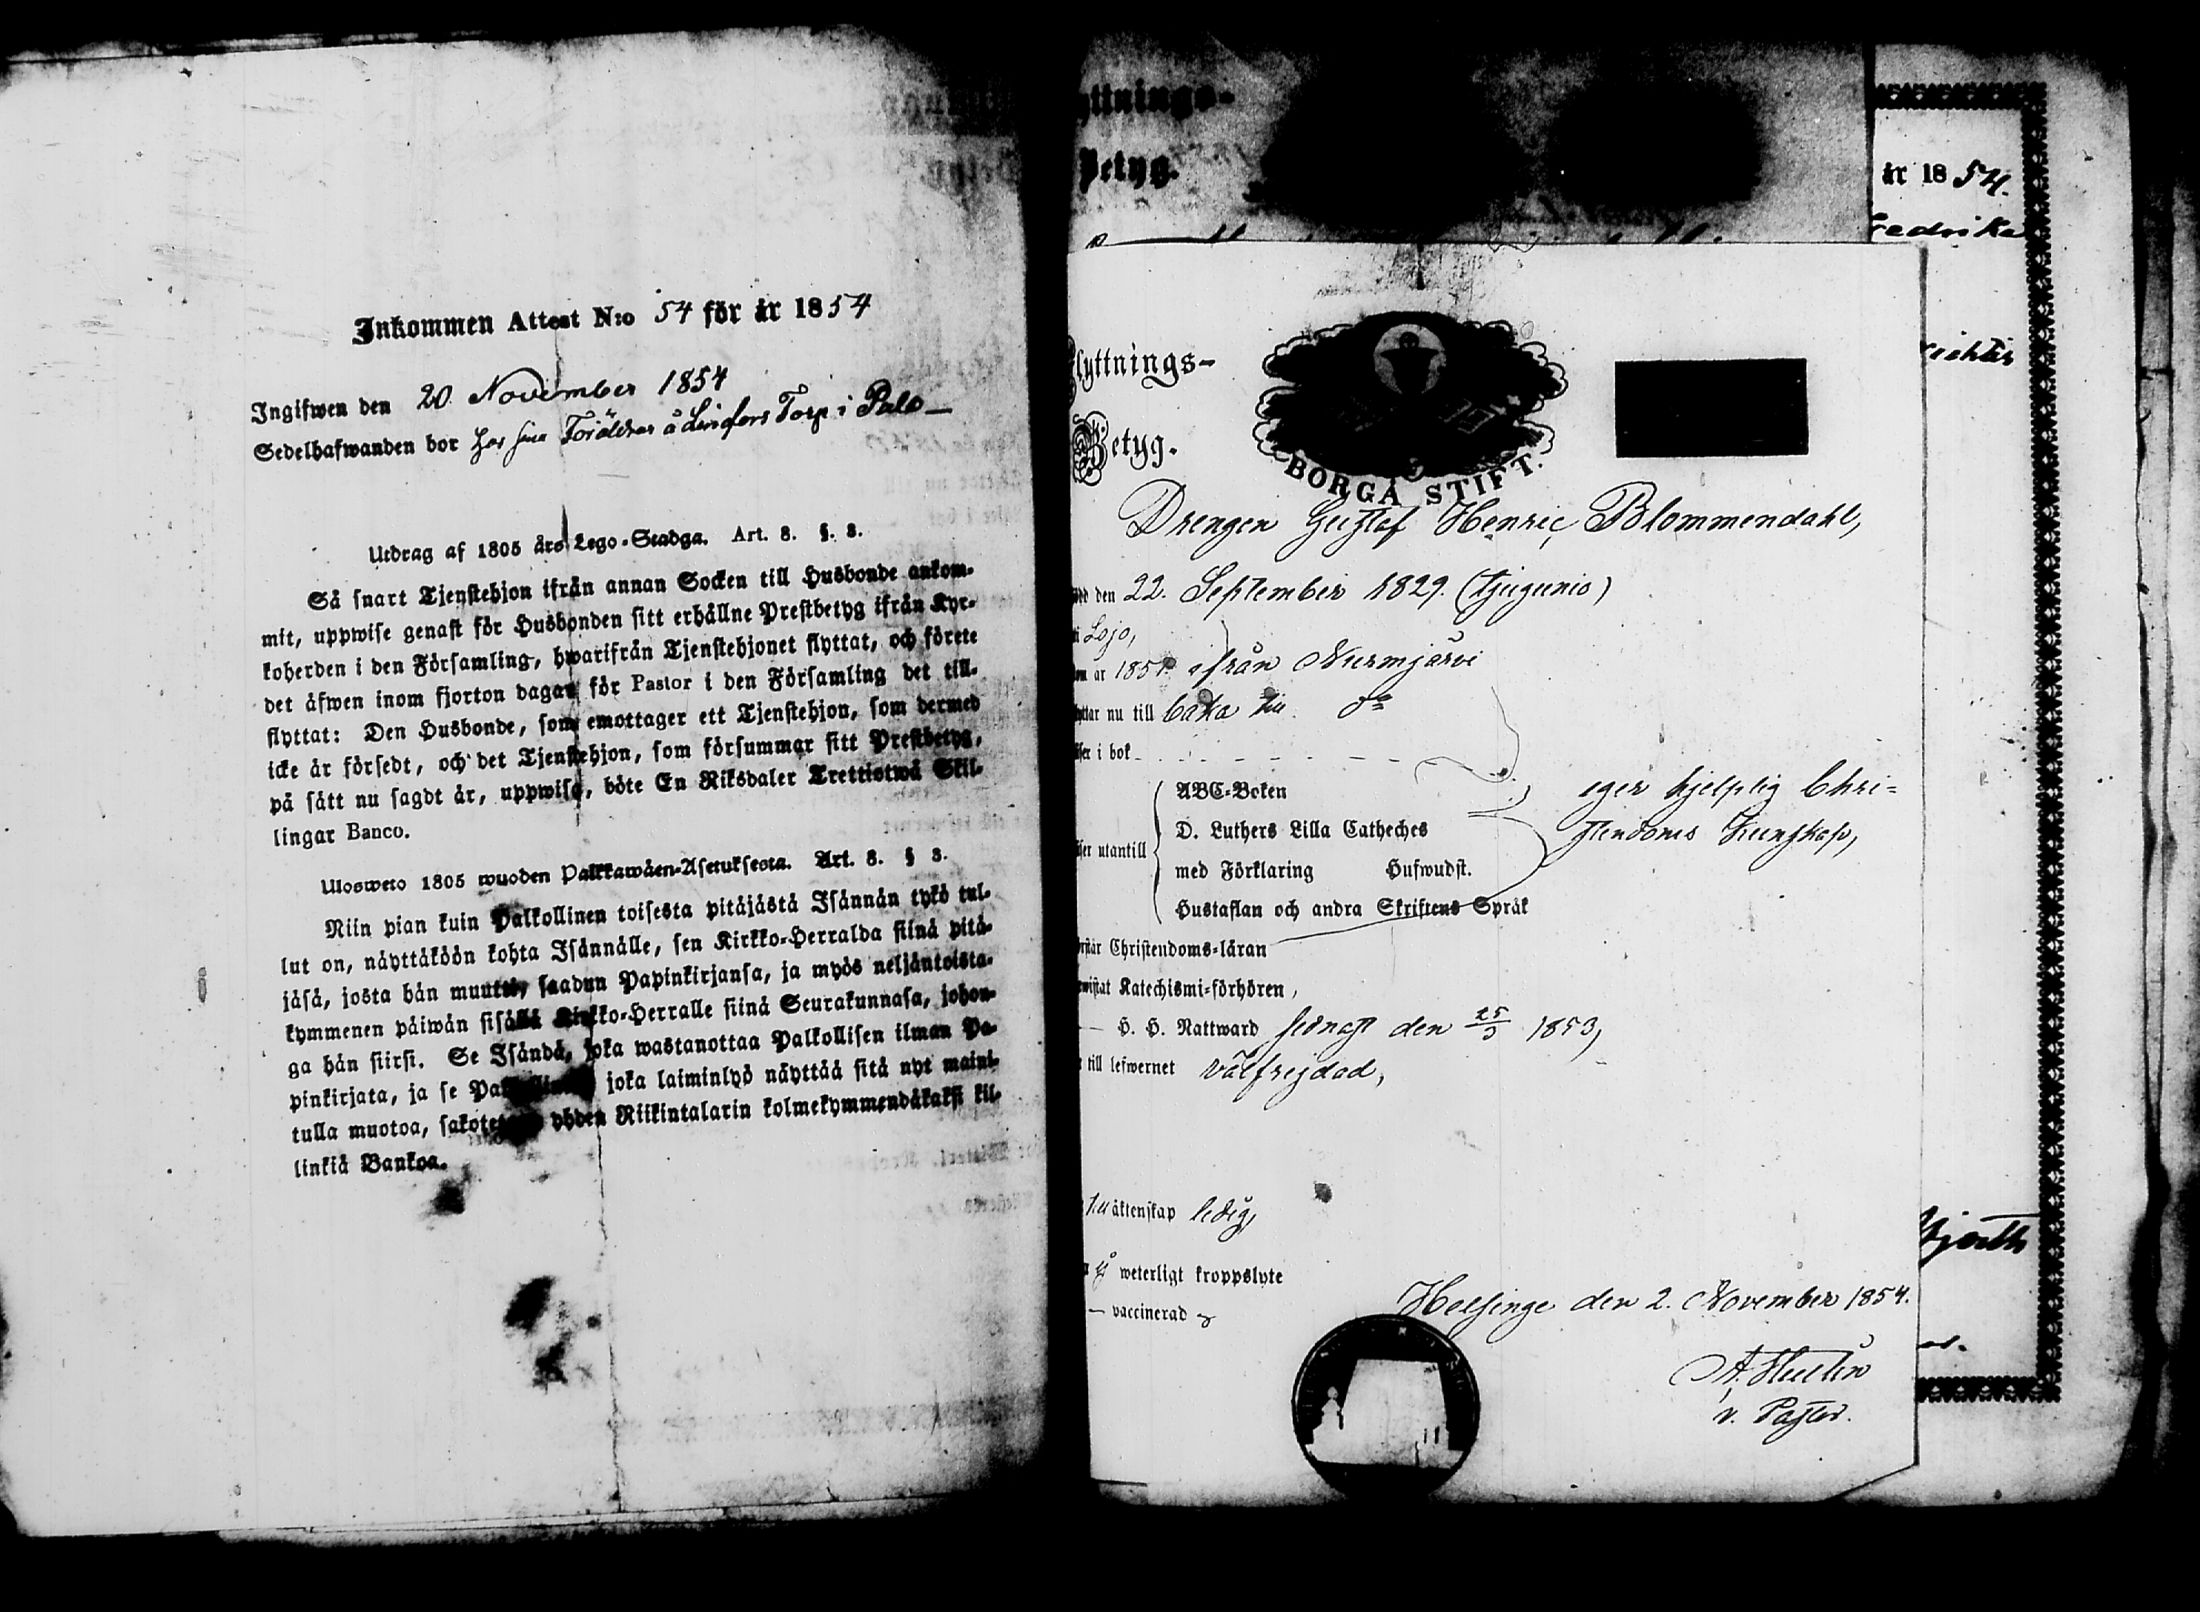 Inkommen Attest N:o 54 för år 1854
Ingifwen den 20 November 1854
Sedelhafwanden bor hos sina Föräldrar å Torp i Palo-
Utdrag af 1805 års Lego-Stadga. Art. 8. §. 3.
Så snart Tjenstehjon ifrån annan Socken till Husbonde ankom-
mit, uppwise genast för Husbonden sitt erhållne Prestbetyg ifrån Kyr-
koherden i den Församling, hwarifrån Tjenstehjonet flyttat, och förete
det äfwen inom fjorton dagar för Pastor i den Församling det till-
flyttat: Den Husbonde, som emottager ett Tjenstehjon, som dermed
icke är försedt, och det Tjenstehjon, som försummar sitt Prestbetyg,
på sätt nu sagdt är, uppwisa, böte En Riksdaler Trettiotwå Skil-
lingar Banco.
Ulosweto 1805 wuoden Palkkawäen-Asetuksesta. Art. 8. § 3.
Niin pian kuin Palkollinen toisesta pitäjästä Isännän tykö tul-
lut on, näyttäköön kohta Isännälle, sen Kirkko-Herralda siinä pitä-
jäsä, josta hän muutti, saadun Papinkirjansa, ja myös neljäntoista-
kymmenen päiwän sisällä Kirkko-Herralle siinä Seurakunnasa, johon-
ga hän siirsi. Se Isändä, joka wastanottaa Palkollisen ilman Pa-
pinkirjata, ja se joka laiminlyö näyttää sitä nyt maini-
tulla muotoa, yhden Riikintalarin kolmekymmendäkaksi kil-
linkiä Bankoa.
yttnings-
Betyg.
år 1854.
Fredrika
lyttnings-
Betyg.
BORGÅ STIFT.
Drengen Gustaf Henric Blommendahl,
född den 22. September 1829. (tjugunio)
i Lojo,
om år 1851 ifrån Nurmijärvi
flyttar nu till baka till do
läser i bok
ABC-Boken
eger hjelplig Chri-
D. Luthers Lilla Catheches
stendoms kunskap,
läser utantill
med Förklaring Hufwudst.
Hustaflan och andra Skriftens Språk
örstår Christendoms-läran
ewistat Katechismi-förhören,
H. H. Nattward sednast den 25/3 1853,
till lefwernet välfrejdad,
till äktenskap ledig,
ej weterligt kroppslyte
vaccinerad
Helsinge den 2. November 1854.
v. Pastor.